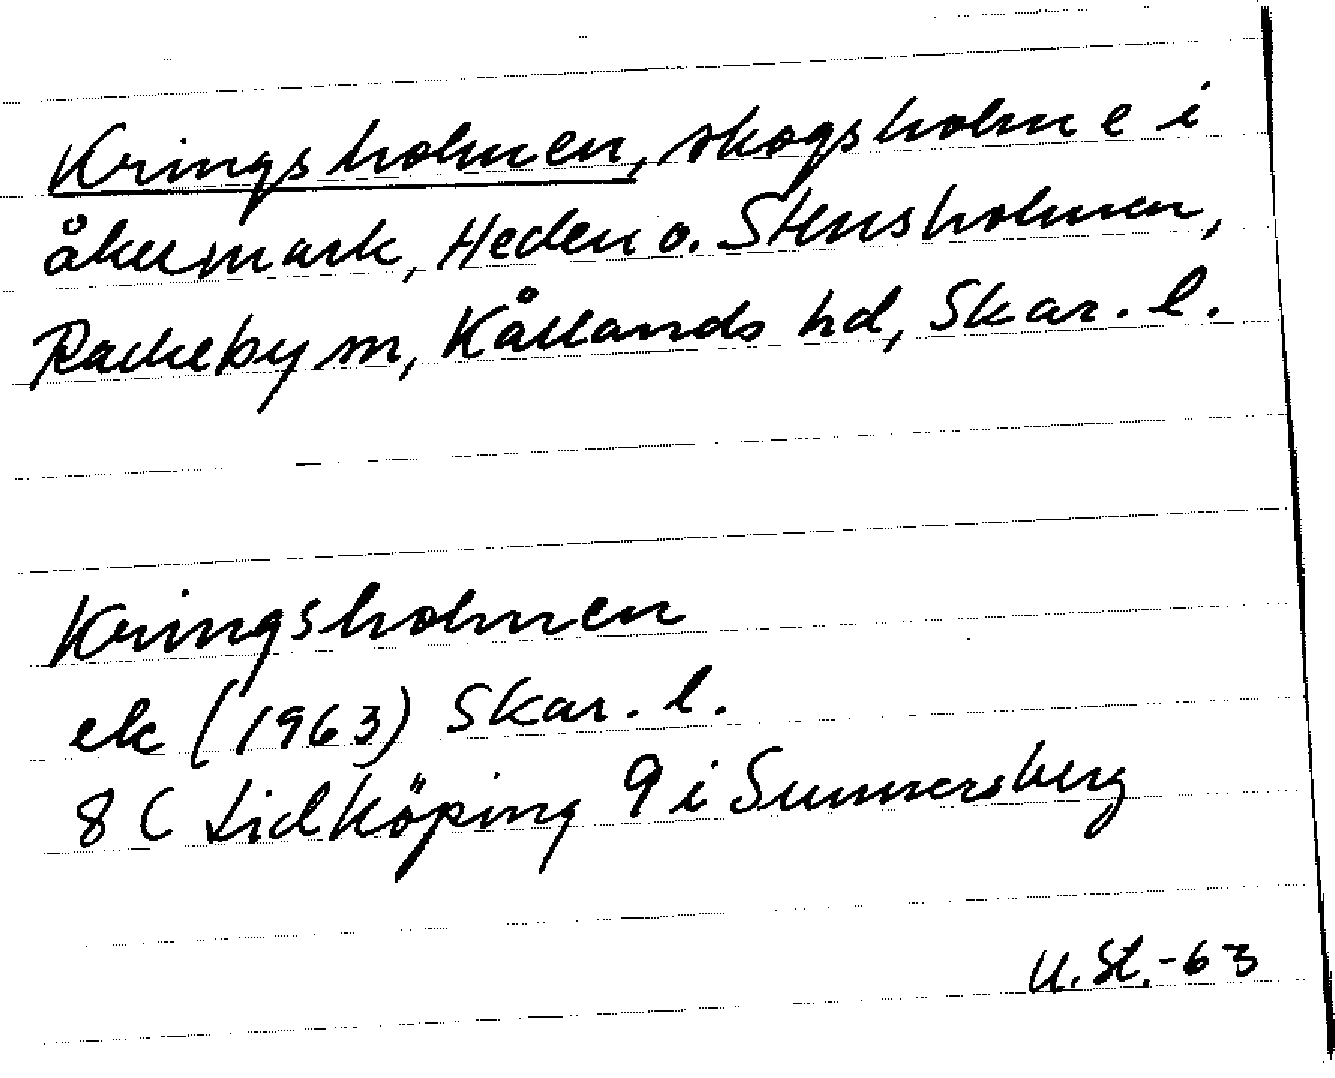 Kringsholmen, skogsholme i
åkermark, Heden o. Stensholmen,
Rackeby sn, Kållands hd, Skar. l.
Kringsholmen
ek (1963) Skar. l.
8 C Lidköping 9 i Sunnersberg
U. St. -63